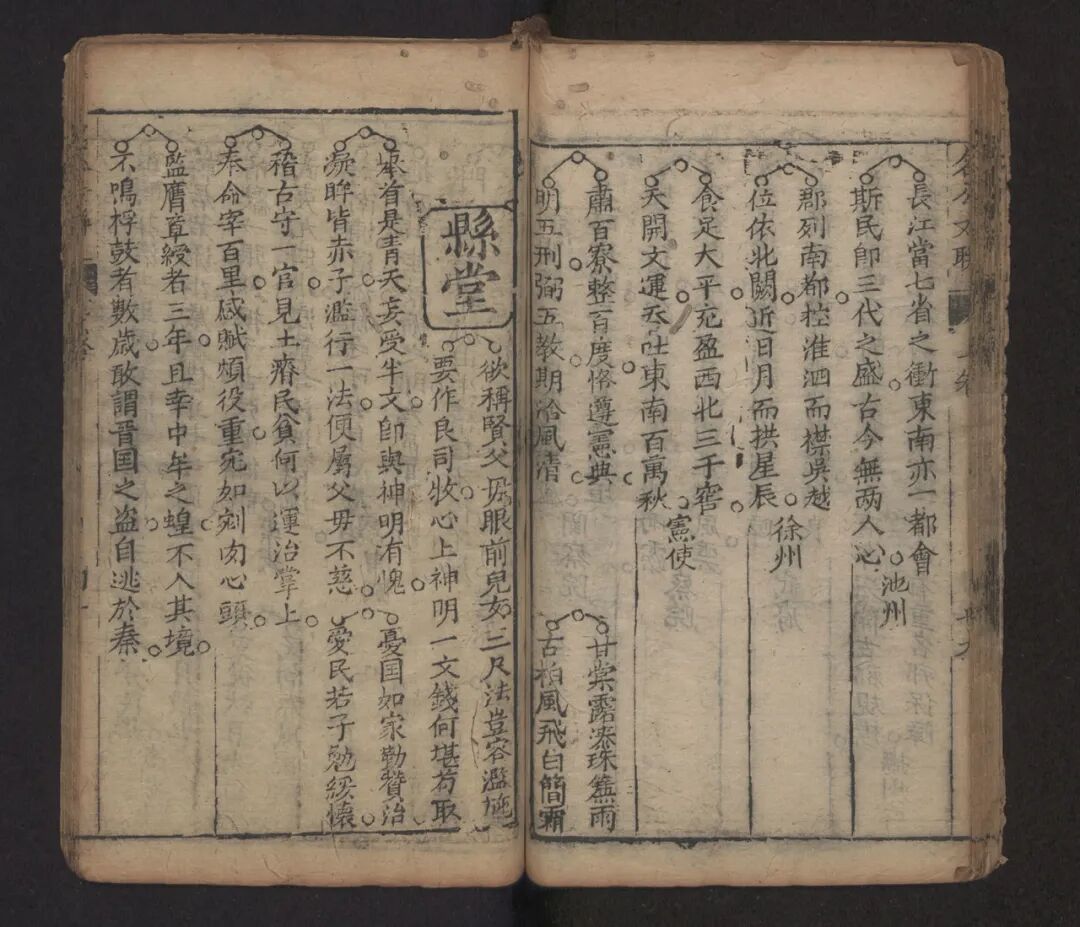 長江當七省之衝東南亦一都會
斯民即三代之盛古今無两人心
池州
郡列南都控淮泗而襟吳越
位依北闕近日月而拱星辰
徐州
食足大平充盈西北三千窖
天開文運吞吐東南百萬秋
憲使
肅百寮整百度恪遵憲典
明五刑弼五教期洽風清
甘棠露滌珠簾雨
古柏風飛白簡霜
縣堂
欲稱賢父母眼前兒女三尺法豈容濫施
要作良司牧心上神明一文錢何堪苟取
書首是青天妄受半文即與神明有愧
凝眸皆赤子濫行一法便屬父毋不慈
憂国如家勤贊治
愛民若子勉綏懷
稽古守一官見土瘠民貧何以運治掌上
奉命宰百里感賦煩役重宛如剜肉心頭
監膺章綬者三年且幸中牟之蝗不入其境
不鳴桴鼓者數歲敢謂晋国之盗自逃於秦